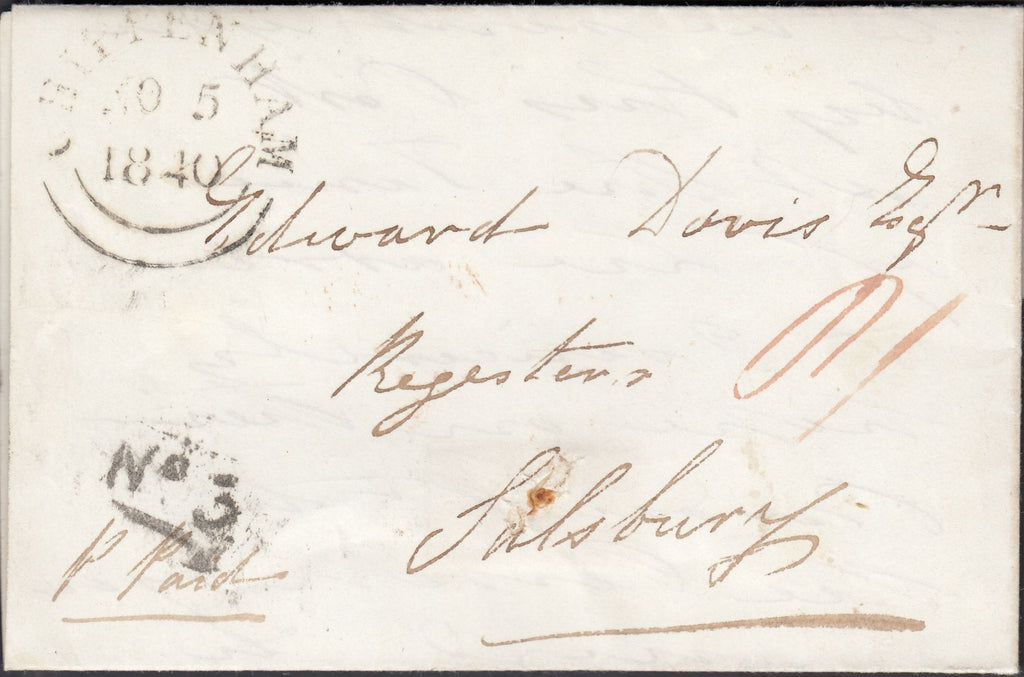 CHIPPENHAM
NO 5
1840
Edward Davis Esqr
Registerr
Salsbury
No 3
P Paid